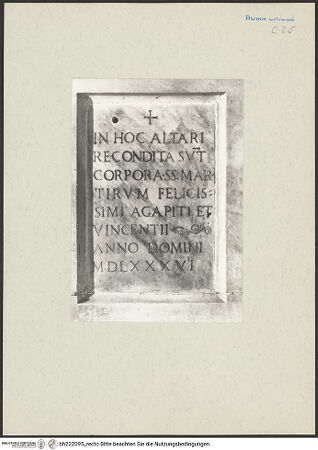 C 25
+
IN HOC ALTARI
RECONDITA SV̄T
CORPORA SS. MAR
TIRVM FELICIS=
SIMI AGAPITI ET
VINCENTII
ANNO DOMINI
MDLXXXVI
bh222093_recto Bitte beachten Sie die Nutzungsbedingungen